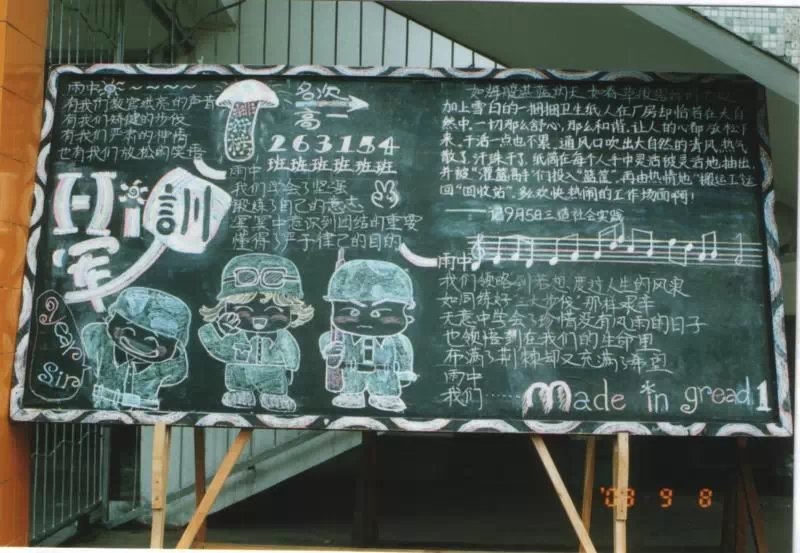 雨中～～～～
有我们教官洪亮的声音
有我们矫健的步伐
有我们严肃的神情
也有我们放松的笑语
名次
高一
2 6 3 1 5 4
班班班班班班
雨中
我们学会了坚强
锻炼了自己的意志
意识到团结的重要
懂得了严于律己的目的
训
军
year Sir
加上雪白的一捆捆卫生纸人在厂房却恰若在大自
然中.一切那么舒心,那么和谐.让人的心都放松下
来.干活一点也不累.通风口吹出大自然的清风.热气
散了.汗珠干了.纸滴在每个人手中灵活彼灵活地.抽出.
并被"灌篮高手"们投入"篮筐".再由热情地"搬运工"送
回"回收站".多么欢快热闹的工作场面啊!
——记9月5日三诘社会实践
雨中
我们领略到若想度过人生的风采
如同练好三大步伐那样艰辛
无意中学会了珍惜没有风雨的日子
也领悟到在我们的生命里
布满了荆棘却又充满了希望
雨中
我们……
made in gread 1
'03 9 8